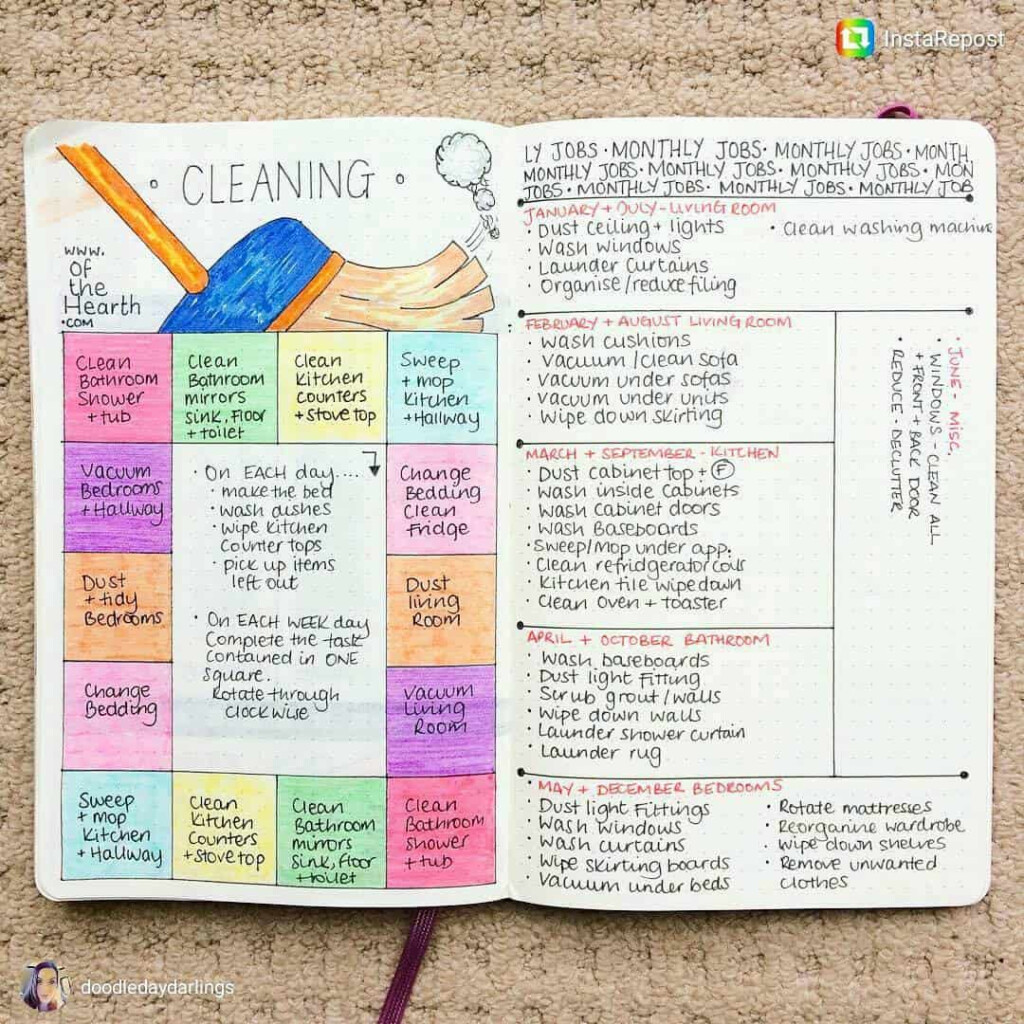 InstaRepost
CLEANING
www.
Of
the
Hearth
.COM
Clean
Bathroom
Shower
+ tub
Clean
Bathroom
mirrors
sink, floor
+ toilet
Clean
Kitchen
Counters
+ stove top
Sweep
+ mop
Kitchen
+Hallway
Vacuum
Bedrooms
+ Hallway
Dust
+ tidy
Bedrooms
Change
Bedding
Sweep
+ mop
Kitchen
+ Hallway
Clean
Kitchen
Counters
+ stove top
Clean
Bathroom
mirrors
sink, floor
+ toilet
Clean
Bathroom
shower
+ tub
Change
Bedding
Clean
Fridge
Dust
living
Room
Vacuum
Living
Room
· On EACH day....
· make the bed
· wash dishes
· wipe kitchen
Counter tops
· pick up items
left out
· On EACH WEEK day
Complete the task
Contained in ONE
square.
Rotate through
clockwise
LY JOBS · MONTHLY JOBS · MONTHLY JOBS · MONTH
MONTHLY JOBS · MONTHLY JOBS · MONTHLY JOBS · MON
JOBS · MONTHLY JOBS · MONTHLY JOBS · MONTHLY JOB
JANUARY + JULY - LIVING ROOM
· Dust ceiling + lights
· Wash windows
· Launder Curtains
· Organise/reduce filing
· Clean washing machine
FEBRUARY + AUGUST LIVING ROOM
· Wash cushions
· Vacuum /clean sofa
· Vacuum under sofas
· Vacuum under units
· Wipe down skirting
MARCH + SEPTEMBER - KITCHEN
· Dust cabinet top + F
· Wash inside Cabinets
· Wash cabinet doors
· Wash Baseboards
· Sweep/Mop under app.
· Clean refridgerator coils
· Kitchen tile wipedown
· Clean Oven + toaster
APRIL + OCTOBER BATHROOM
· Wash baseboards
· Dust light Fitting
· Scrub grout / walls
· Wipe down walls
· Launder shower curtain
· Launder rug
· MAY + DECEMBER BEDROOMS
· Dust light Fittings
· Wash windows
· Wash curtains
· Wipe skirting boards
· Vacuum under beds
· Rotate mattresses
· Reorganine wardrobe
· Wipe down shelves
· Remove unwanted
clothes
· JUNE - MISC.
· WINDOWS - CLEAN ALL
+ FRONT + BACK DOOR
· REDUCE - DECLUTTER
doodledaydarlings